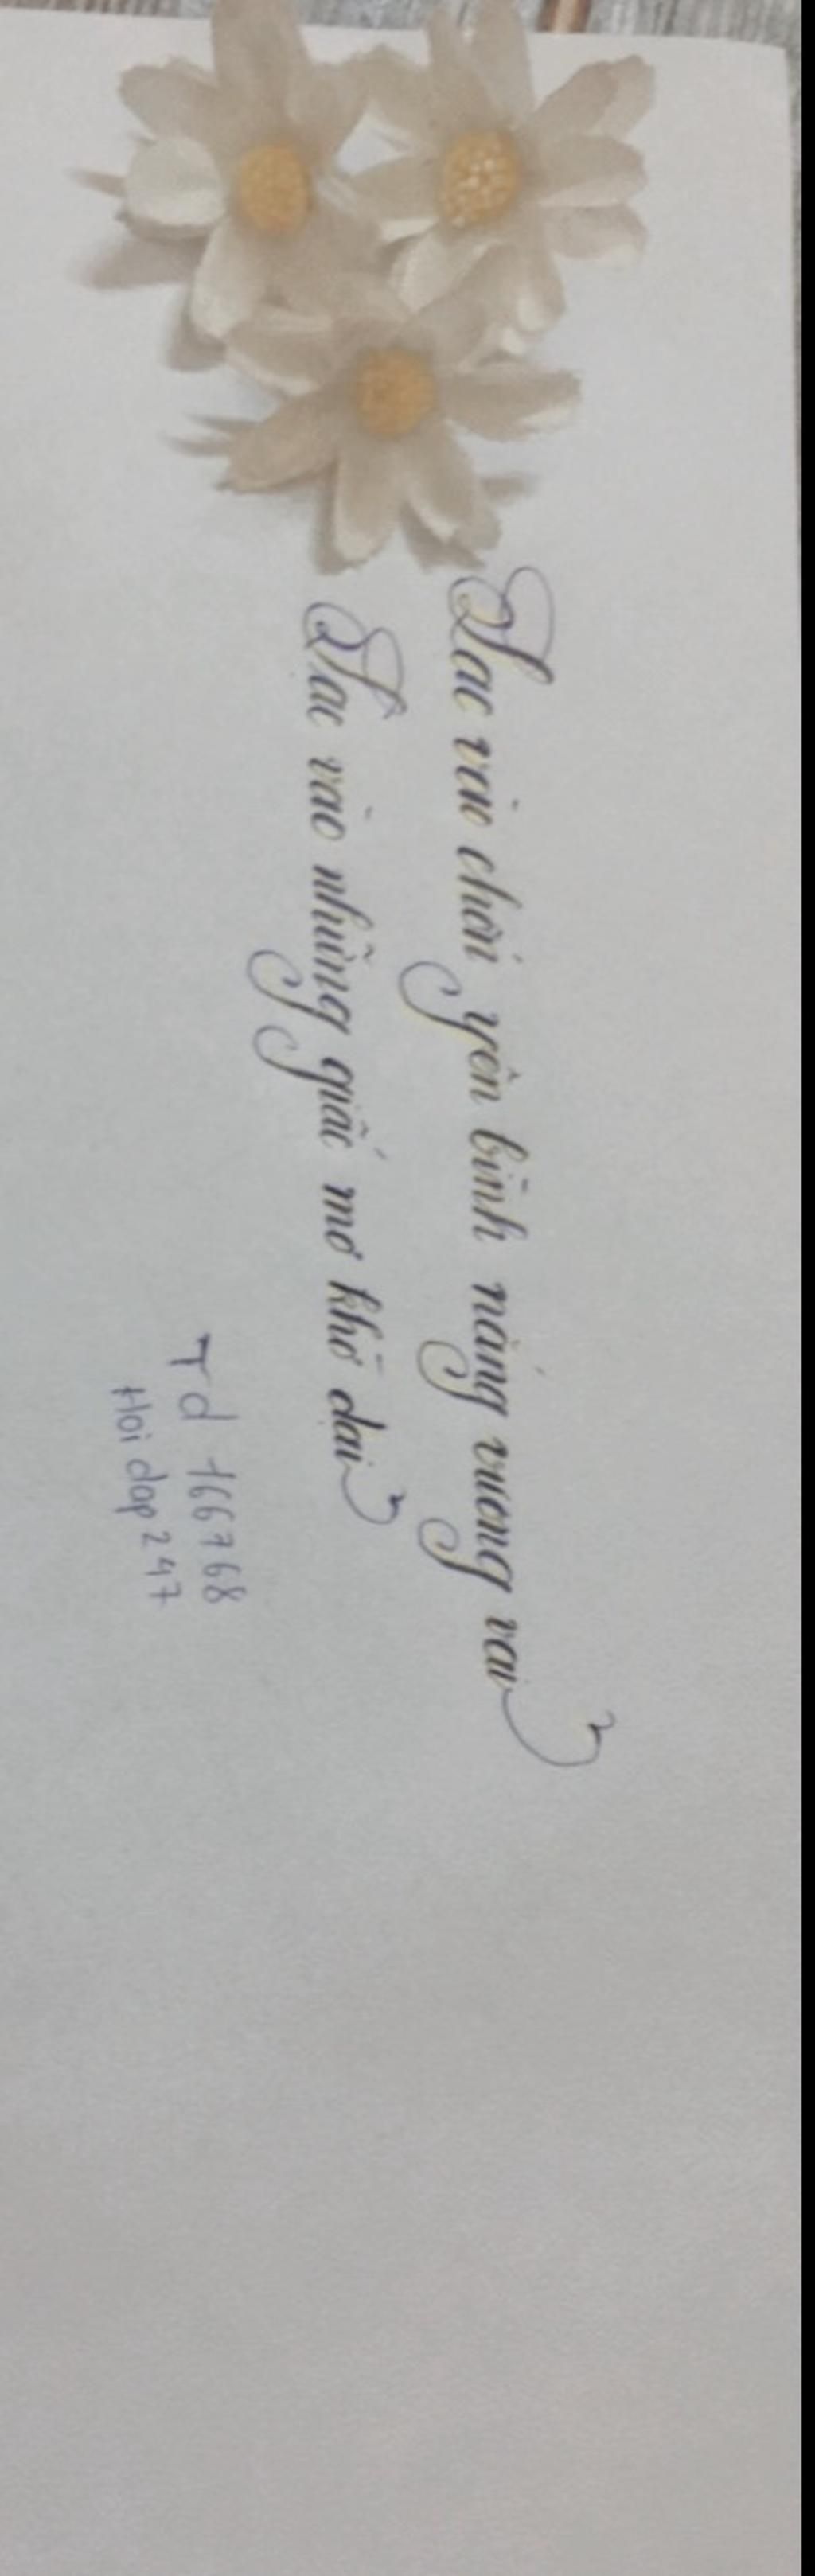 Lạc vào chốn yên bình nắng vương vai
Lạc vào những giấc mơ khờ dại
Td 166768
Hoi dap 247